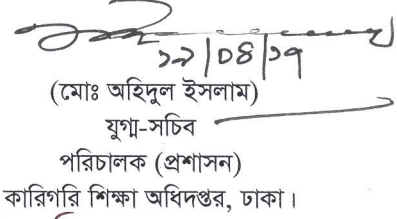 (মোঃ অহিদুল ইসলাম)
যুগ্ম-সচিব
পরিচালক (প্রশাসন)
কারিগরি শিক্ষা অধিদপ্তর, ঢাকা।